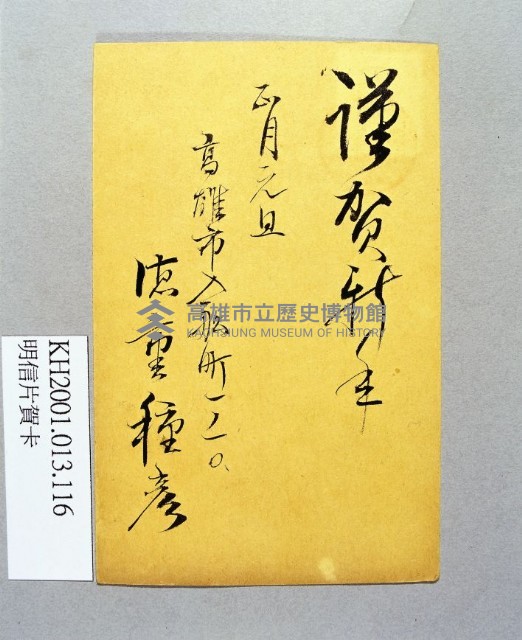 謹賀新年
正月元旦
高雄市入船町一ノ一〇
徳重種彦
高雄市立歷史博物館
KAOHSIUNG MUSEUM OF HISTORY
KH2001.013.116
明信片賀卡